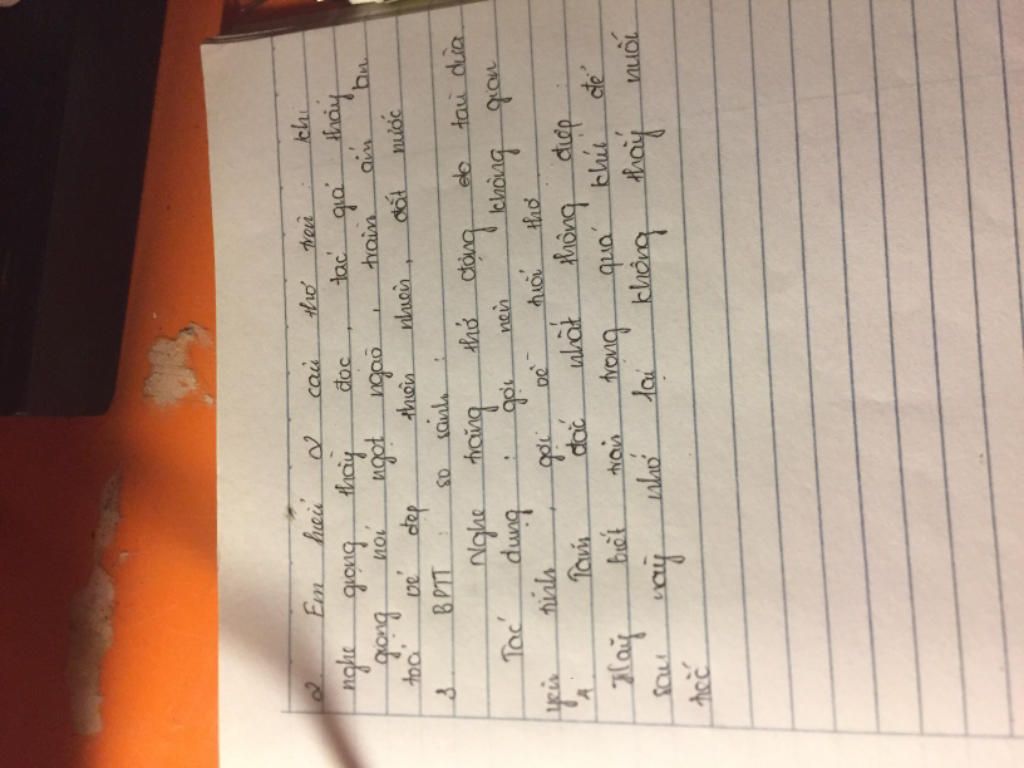 2. Em hiểu 2 câu thơ trên : khi
nghe giọng thầy đọc, tác giả thấy
giọng nói ngọt ngào, tràn ân
toả vẻ đẹp thiên nhiên, đất nước
3. BPTT : so sánh :
Nghe trăng thở động tàu dừa
Tác dụng : gợi nên không gian
yên tĩnh, gợi về tuổi thơ.
4 Tâm đắc nhất thông điệp :
Hãy biết trân trọng quá khứ để
sau này nhớ lại không thấy nuối
tiếc